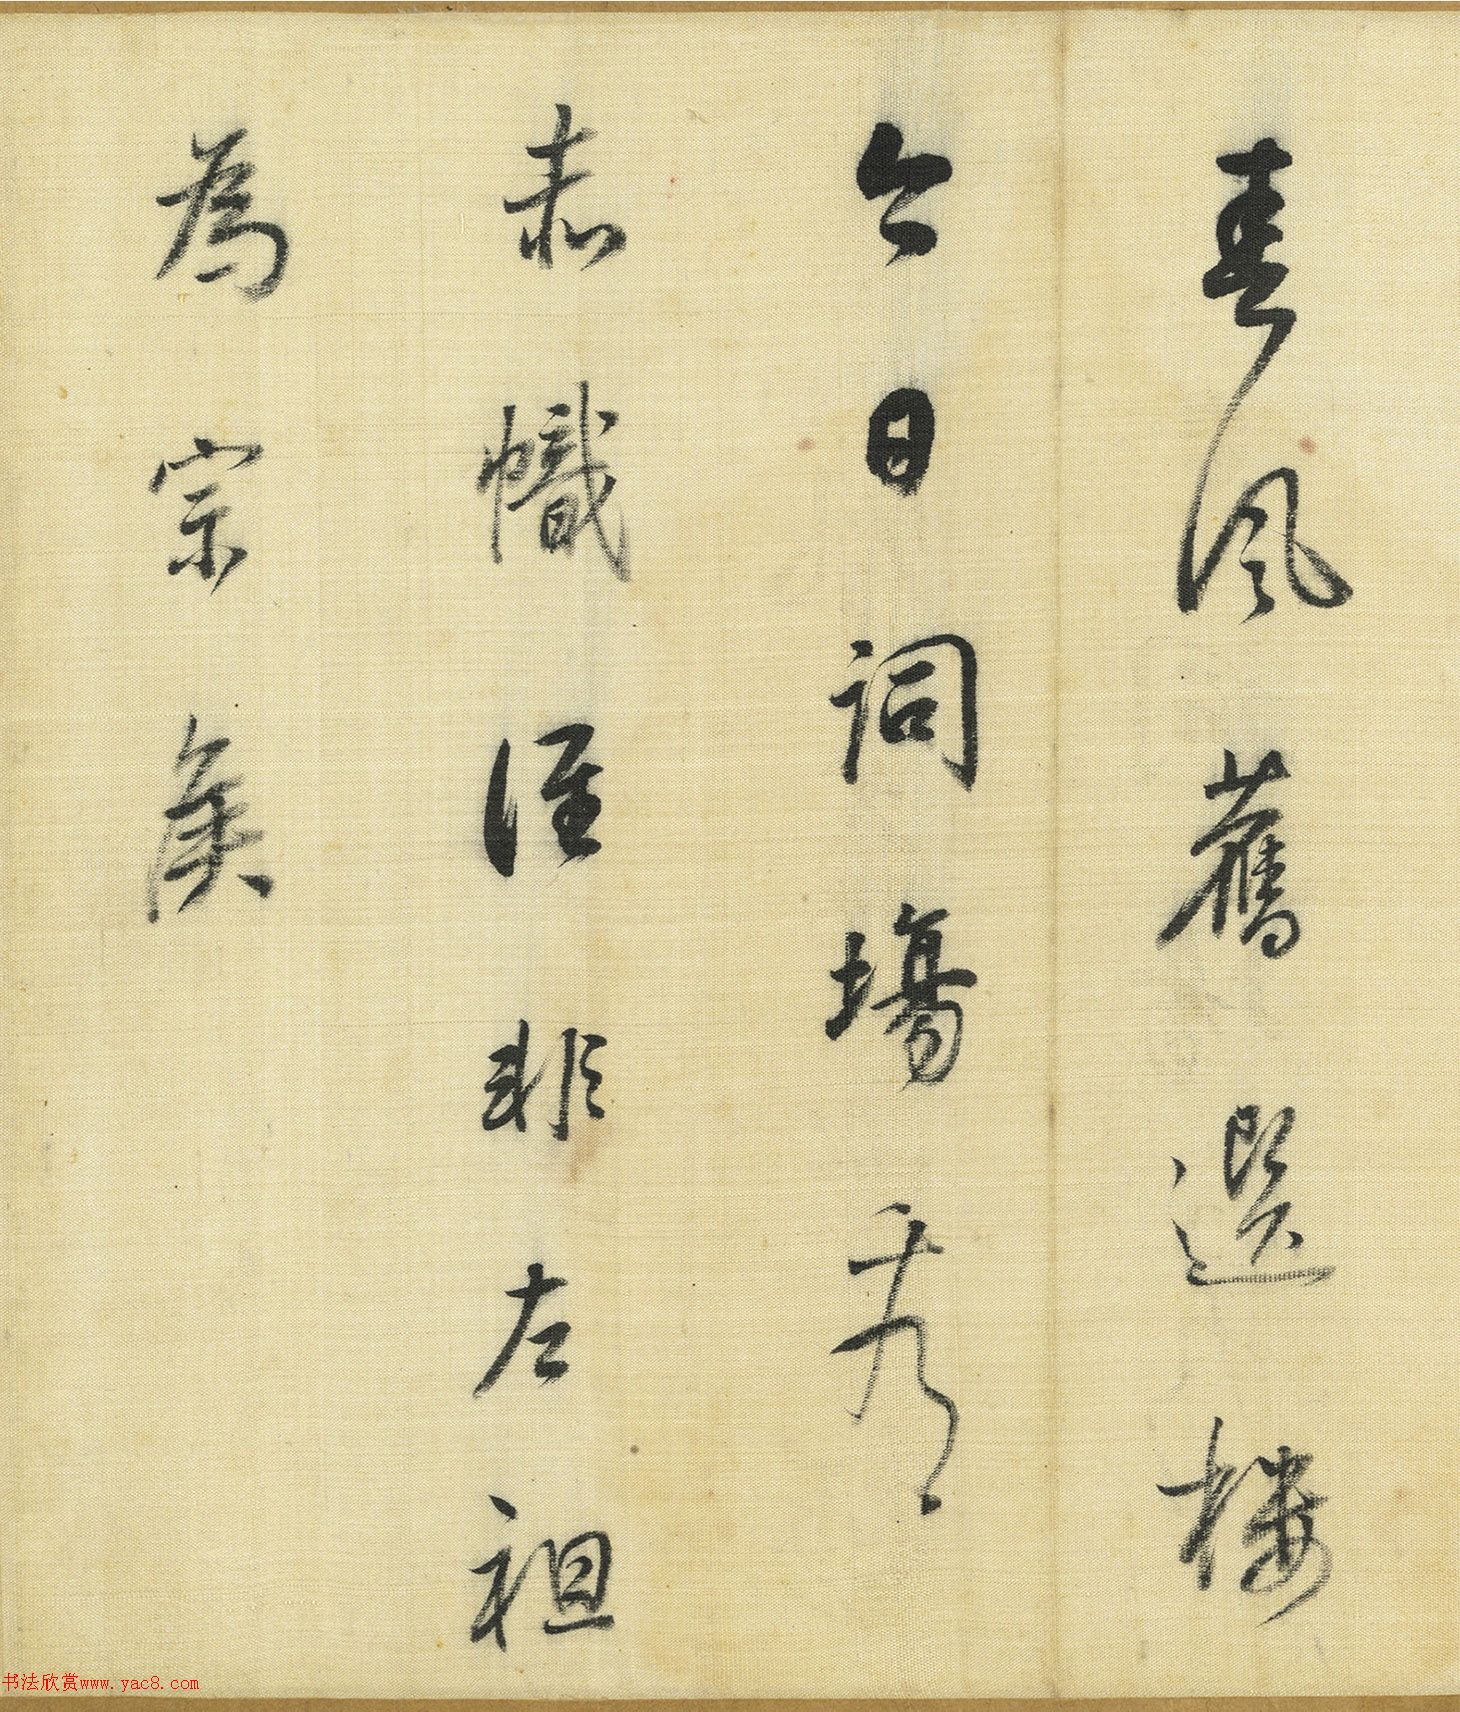 春風舊選樓
今日詞場看
赤幟誰非左袒
為宗矦
书法欣赏www.yac8.com